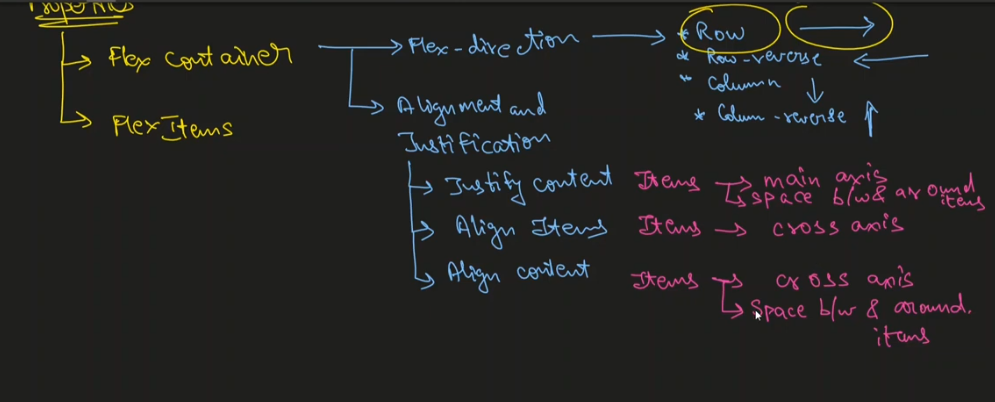 Properties
→ Flex container → Flex-direction → * Row →
* Row-reverse ←
* Column ↓
* Colum-reverse ↑
→ Flex Items
→ Alignment and
Justification
→ Justify content Items → main axis
→ space b/w & around
items
→ Align Items Items → cross axis
→ Align content Items → cross axis
→ Space b/w & around.
items